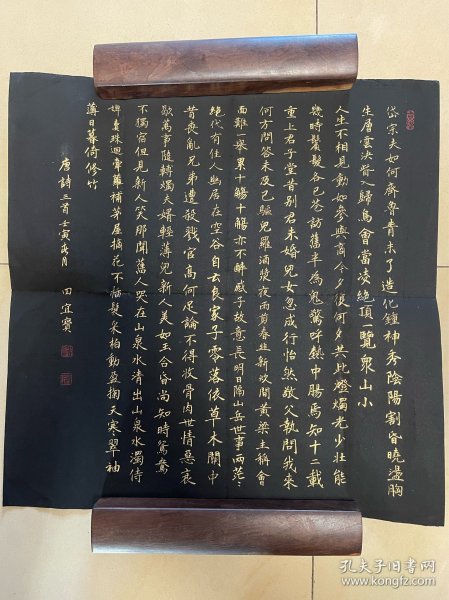 岱宗夫如何齊魯青未了造化鍾神秀陰陽割昏曉盪胸
生層雲決眥入歸鳥會當凌絕頂一覽衆山小
人生不相見動如參與商今夕復何夕共此燈燭光少壯能
幾時鬢髮各已蒼訪舊半為鬼驚呼熱中腸焉知十二載
重上君子堂昔別君未婚兒女忽成行怡然敬父執問我來
何方問答未及已驅兒羅酒漿夜雨剪春韭新炊間黃粱主稱會
面難一舉累十觴十觴亦不醉感子故意長明日隔山岳世事兩茫〻
絕代有佳人幽居在空谷自云良家子零落依草木關中
昔喪亂兄弟遭殺戮官高何足論不得收骨肉世情惡衰
歇萬事隨轉燭夫婿輕薄兒新人美如玉合昏尚知時鴛鴦
不獨宿但見新人笑那聞舊人哭在山泉水清出山泉水濁侍
婢賣珠迴牽蘿補茅屋摘花不插髮采柏動盈掬天寒翠袖
薄日暮倚修竹
唐詩三首壬寅月 田宜賓
孔夫子旧书网
www.kongfz.com